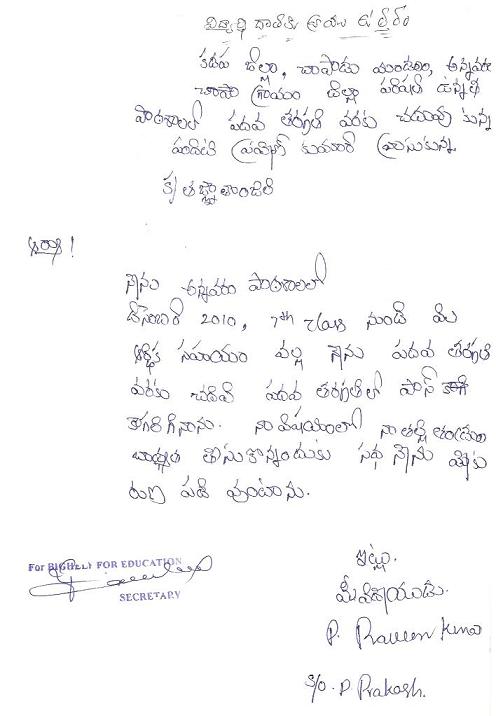 విద్యార్థి దాతకు రాయు ఉత్తరం
కడప జిల్లా, చాపాడు మండలం, అన్నవరం
గ్రామం జిల్లా పరిషత్ ఉన్నత
పాఠశాలలో పదవ తరగతి వరకు చదువు కున్న
పండిటి ప్రవీణ్ కుమార్ వ్రాసుకున్న
కృతజ్ఞతాంజలి
ఆర్యా!
నేను అన్నవరం పాఠశాలలో
డిసెంబర్ 2010, 7th class నుండి మీ
ఆర్థిక సహాయం వల్ల నేను పదవ తరగతి
వరకు చదివి పదవ తరగతిలో పాస్
కాగలిగినాను. నా విషయంలో నా తల్లి తండ్రుల
బాధ్యత తీసుకొన్నందుకు సదా నేను మీకు
రుణ పడి వుంటాను.
For BIGHELP FOR EDUCATION
SECRETARY
ఇట్లు.
మీ విధేయుడు.
P. Praveen Kumar
S/o. P Prakash.